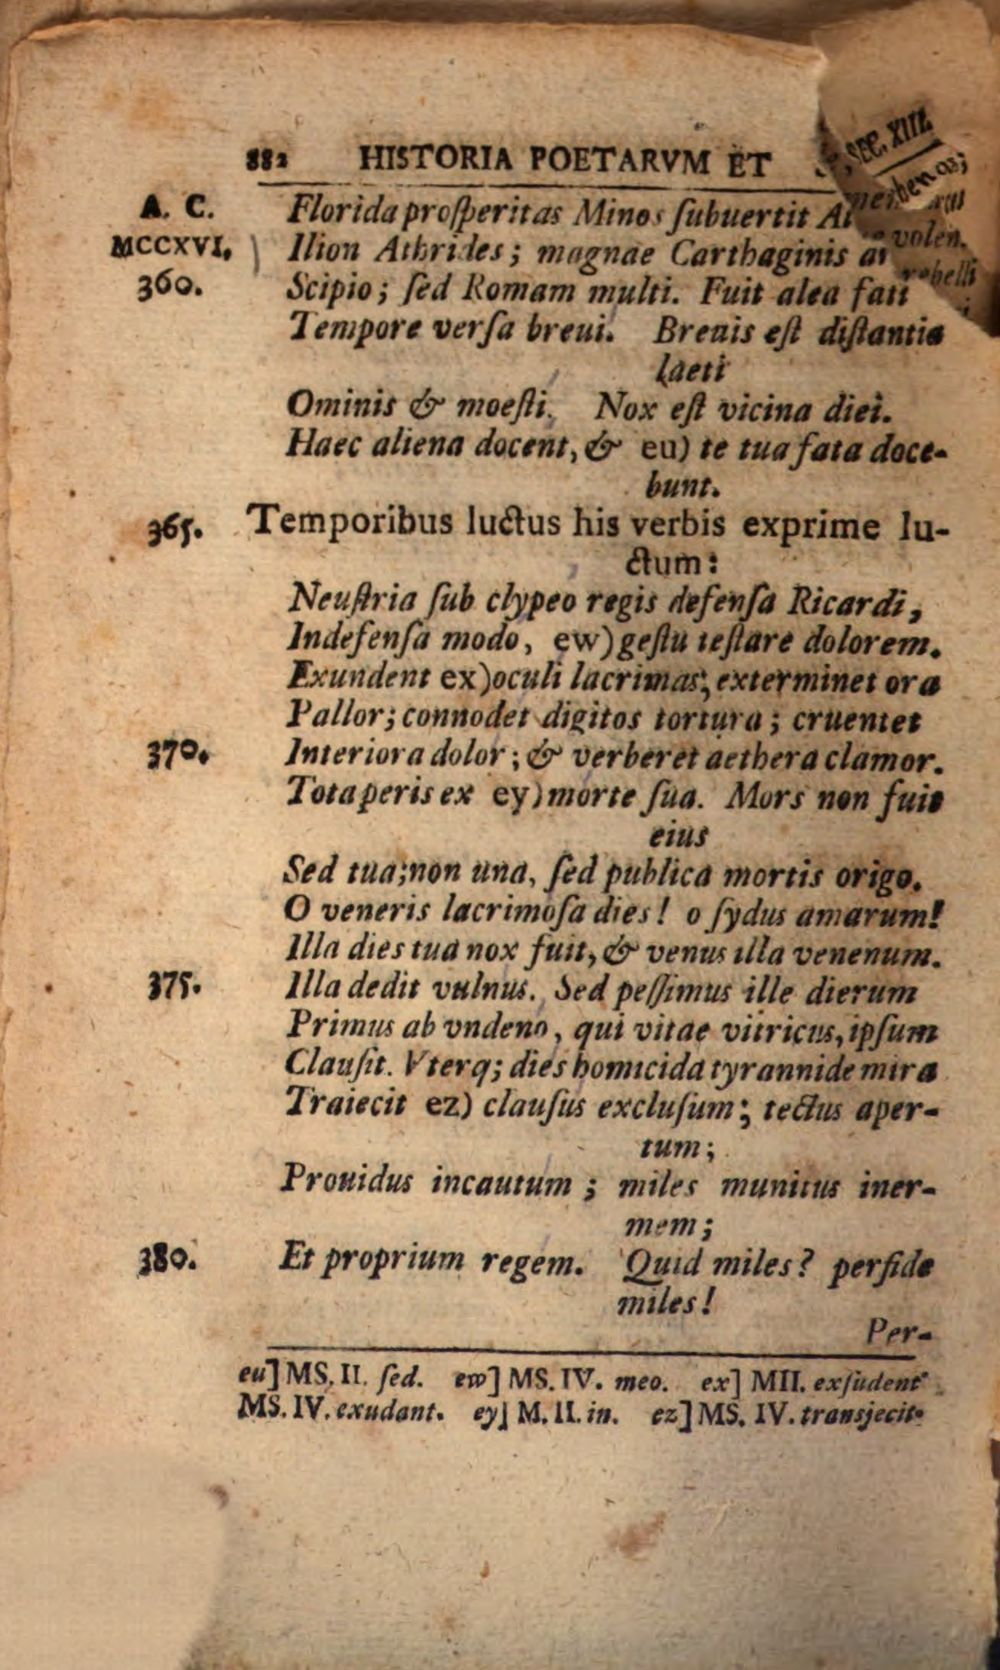 882 HISTORIA POETARVM ET
SEC. XIII.
A. C. Florida proſperitas Minos ſubuertit
MCCXVI. Ilion Athrides; magnae Carthaginis
volen.
360. Scipio; ſed Romam multi. Fuit alea fati
Tempore verſa breui. Breuis eſt diſtantia
laeti
Ominis & moeſti. Nox eſt vicina diei.
Haec aliena docent, & eu) te tua fata doce-
bunt.
365. Temporibus luctus his verbis exprime lu-
ctum:
Neuſtria ſub clypeo regis defenſa Ricardi,
Indefenſa modo, ew) geſtu teſtare dolorem.
Exundent ex) oculi lacrimas; exterminet ora
Pallor; connodet digitos tortura; cruentet
370. Interiora dolor; & verberet aethera clamor.
Tota peris ex ey) morte ſua. Mors non fuit
eius
Sed tua; non una, ſed publica mortis origo.
O veneris lacrimoſa dies! o ſydus amarum!
Illa dies tua nox fuit, & venus illa venenum.
375. Illa dedit vulnus. Sed peſſimus ille dierum
Primus ab vndeno, qui vitae vitricus, ipſum
Clauſit. Vterq; dies homicida tyrannide mira
Traiecit ez) clauſus excluſum; tectus aper-
tum;
Prouidus incautum; miles munitus iner-
mem;
380. Et proprium regem. Quid miles? perfide
miles!
Per-
eu] MS. II. ſed. ew] MS. IV. meo. ex] MII. exſudent
MS. IV. exudant. ey] M. II. in. ez] MS. IV. transjecit.